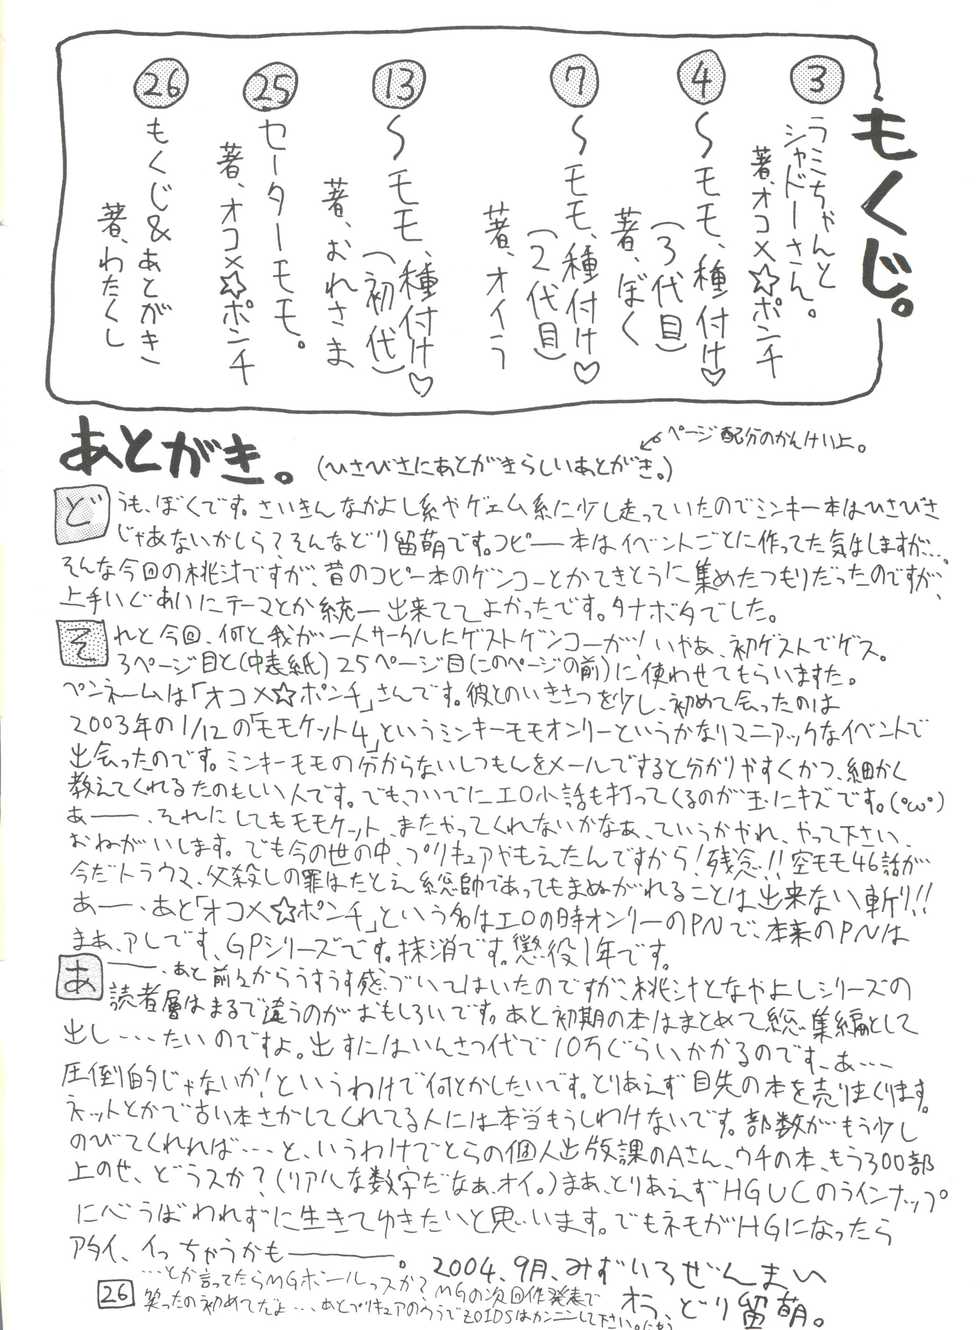 もくじ。
③ ラミちゃんと
シャドーさん。
著、オコメ☆ポンチ
④ 〜モモ、種付け♡
(3代目)
著、ぼく
⑦ 〜モモ、種付け♡
(2代目)
著、オイラ
⑬ 〜モモ、種付け♡
(初代)
著、おれさま
㉕ セーターモモ。
著、オコメ☆ポンチ
㉖ もくじ&あとがき
著、わたくし
あとがき。(ひさびさにあとがきらしいあとがき。)
ページ配分のかんけい上。
どうも、ぼくです。さいきんなかよし系やゲェム系に少し走っていたのでミンキー本はひさびさ
じゃあないかしら?そんなどり留萌です。コピー本はイベントごとに作ってた気はしますが…。
そんな今回の桃汁ですが、昔のコピー本のゲンコーとかてきとうに集めたつもりだったのですが、
上手いぐあいにテーマとか統一出来ててよかったです。タナボタでした。
それと今回、何と我が一人サークルにゲストゲンコーが!いやあ、初ゲストでゲス。
3ページ目と(中表紙)25ページ目(このページの前)に使わせてもらいますた。
ペンネームは「オコメ☆ポンチ」さんです。彼とのいきさつを少し、初めて会ったのは
2003年の1/12の「モモケット4」というミンキーモモオンリーというかなりマニアックなイベントで
出会ったのです。ミンキーモモの分からないしつもんをメールですると分かりやすくかつ、細かく
教えてくれるたのもしい人です。でも、ついでにエロ小話も打ってくるのが玉にキズです。(°ω°)
あー、それにしてもモモケット、またやってくれないかなあ、ていうかやれ、やって下さい、
おねがいします。でも今の世の中、プリキュアやもえたんですから!残念!!空モモ46話が
今だトラウマ、父殺しの罪はたとえ総帥であってもまぬがれることは出来ない斬り!!
あー、あと「オコメ☆ポンチ」という名はエロの時オンリーのPNで、本来のPNは
まあ、アレです、GPシリーズです。抹消です。懲役1年です。
あー、あと前々からうすうす感づいてはいたのですが、桃汁となかよしシリーズの
読者層はまるで違うのがおもしろいです。あと初期の本はまとめて総集編として
出し…たいのですよ。出すにはいんさつ代で10万ぐらいかかるのです、あ…
圧倒的じゃないか!というわけで何とかしたいです。とりあえず目先の本を売りまくります。
ネットとかで古い本さがしてくれてる人には本当もうしわけないです。部数がもう少し
のびてくれれば…と、いうわけでとらの個人出版課のAさん、ウチの本、もう300部
上のせ、どうスか?(リアルな数字だなぁ、オイ。)まあ、とりあえずHGUCのラインナップ
に心うばわれずに生きてゆきたいと思います。でもネモがHGになったら
アタイ、イっちゃうかも―――。2004、9月、みずいろぜんまい
オラ、どり留萌。
…とか言ってたらMGボールっスか?MGの次回作発表で
笑ったの初めてだよ…あとプリキュアのウラでZOIDSはカンニンして下さい。
26